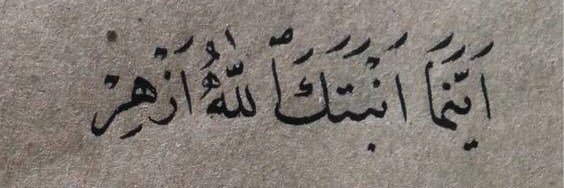 اَيْنَمَا اَنْبَتَكَ ٱللّٰهُ اَزْهِرْ